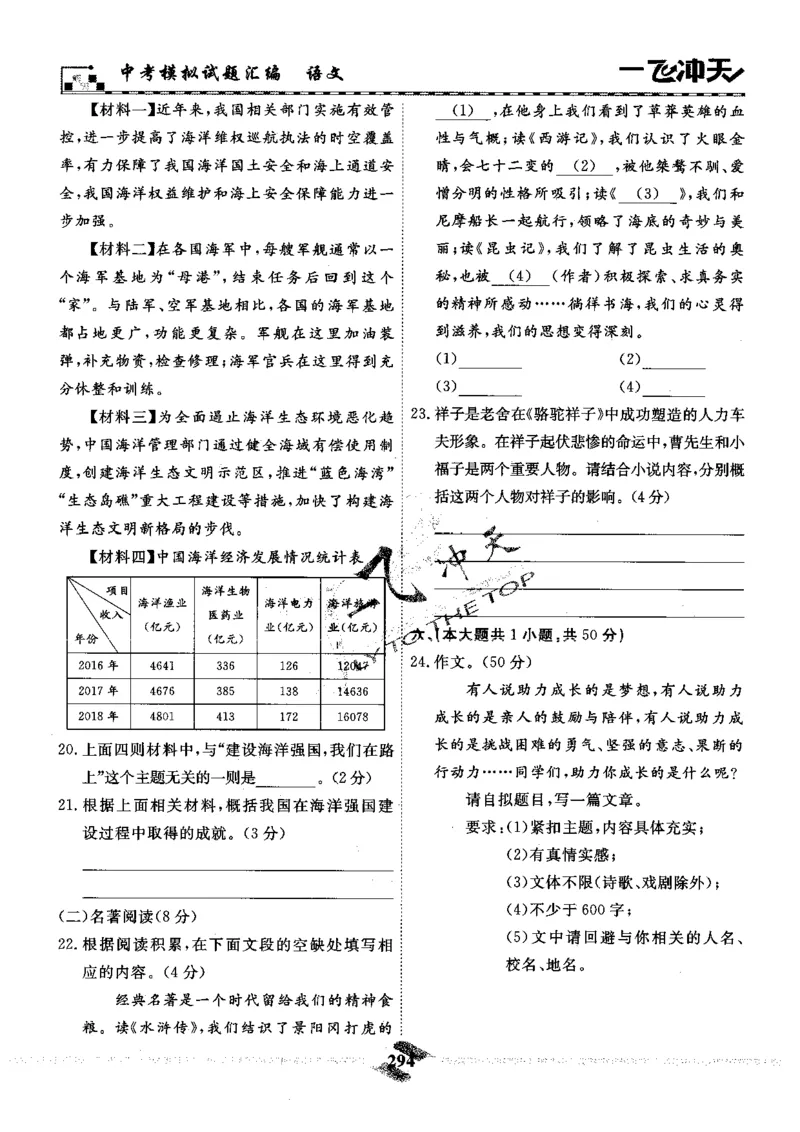 中考模拟试题汇编 语文
一飞冲天
【材料一】近年来,我国相关部门实施有效管
控,进一步提高了海洋维权巡航执法的时空覆盖
率,有力保障了我国海洋国土安全和海上通道安
全,我国海洋权益维护和海上安全保障能力进一
步加强。
【材料二】在各国海军中,每艘军舰通常以一
个海军基地为“母港”,结束任务后回到这个
“家”。与陆军、空军基地相比,各国的海军基地
都占地更广,功能更复杂。军舰在这里加油装
弹,补充物资,检查修理;海军官兵在这里得到充
分休整和训练。
【材料三】为全面遏止海洋生态环境恶化趋
势,中国海洋管理部门通过健全海域有偿使用制
度,创建海洋生态文明示范区,推进“蓝色海湾”
“生态岛礁”重大工程建设等措施,加快了构建海
洋生态文明新格局的步伐。
【材料四】中国海洋经济发展情况统计表
项目 收入 年份 海洋渔业(亿元) 海洋生物医药业(亿元) 海洋电力业(亿元) 海洋旅游业(亿元)
2016年 4641 336 126 12047
2017年 4676 385 138 14636
2018年 4801 413 172 16078
20. 上面四则材料中,与“建设海洋强国,我们在路
上”这个主题无关的一则是______。(2分)
21. 根据上面相关材料,概括我国在海洋强国建
设过程中取得的成就。(3分)
(二)名著阅读(8分)
22. 根据阅读积累,在下面文段的空缺处填写相
应的内容。(4分)
经典名著是一个时代留给我们的精神食
粮。读《水浒传》,我们结识了景阳冈打虎的
(1) ,在他身上我们看到了草莽英雄的血
性与气概;读《西游记》,我们认识了火眼金
睛,会七十二变的 (2) ,被他桀骜不驯、爱
憎分明的性格所吸引;读《 (3) 》,我们和
尼摩船长一起航行,领略了海底的奇妙与美
丽;读《昆虫记》,我们了解了昆虫生活的奥
秘,也被 (4) (作者)积极探索、求真务实
的精神所感动……徜徉书海,我们的心灵得
到滋养,我们的思想变得深刻。
(1)______ (2)______
(3)______ (4)______
23. 祥子是老舍在《骆驼祥子》中成功塑造的人力车
夫形象。在祥子起伏悲惨的命运中,曹先生和小
福子是两个重要人物。请结合小说内容,分别概
括这两个人物对祥子的影响。(4分)
六、(本大题共1小题,共50分)
24. 作文。(50分)
有人说助力成长的是梦想,有人说助力
成长的是亲人的鼓励与陪伴,有人说助力成
长的是挑战困难的勇气、坚强的意志、果断的
行动力……同学们,助力你成长的是什么呢?
请自拟题目,写一篇文章。
要求:(1)紧扣主题,内容具体充实;
(2)有真情实感;
(3)文体不限(诗歌、戏剧除外);
(4)不少于600字;
(5)文中请回避与你相关的人名、
校名、地名。
294